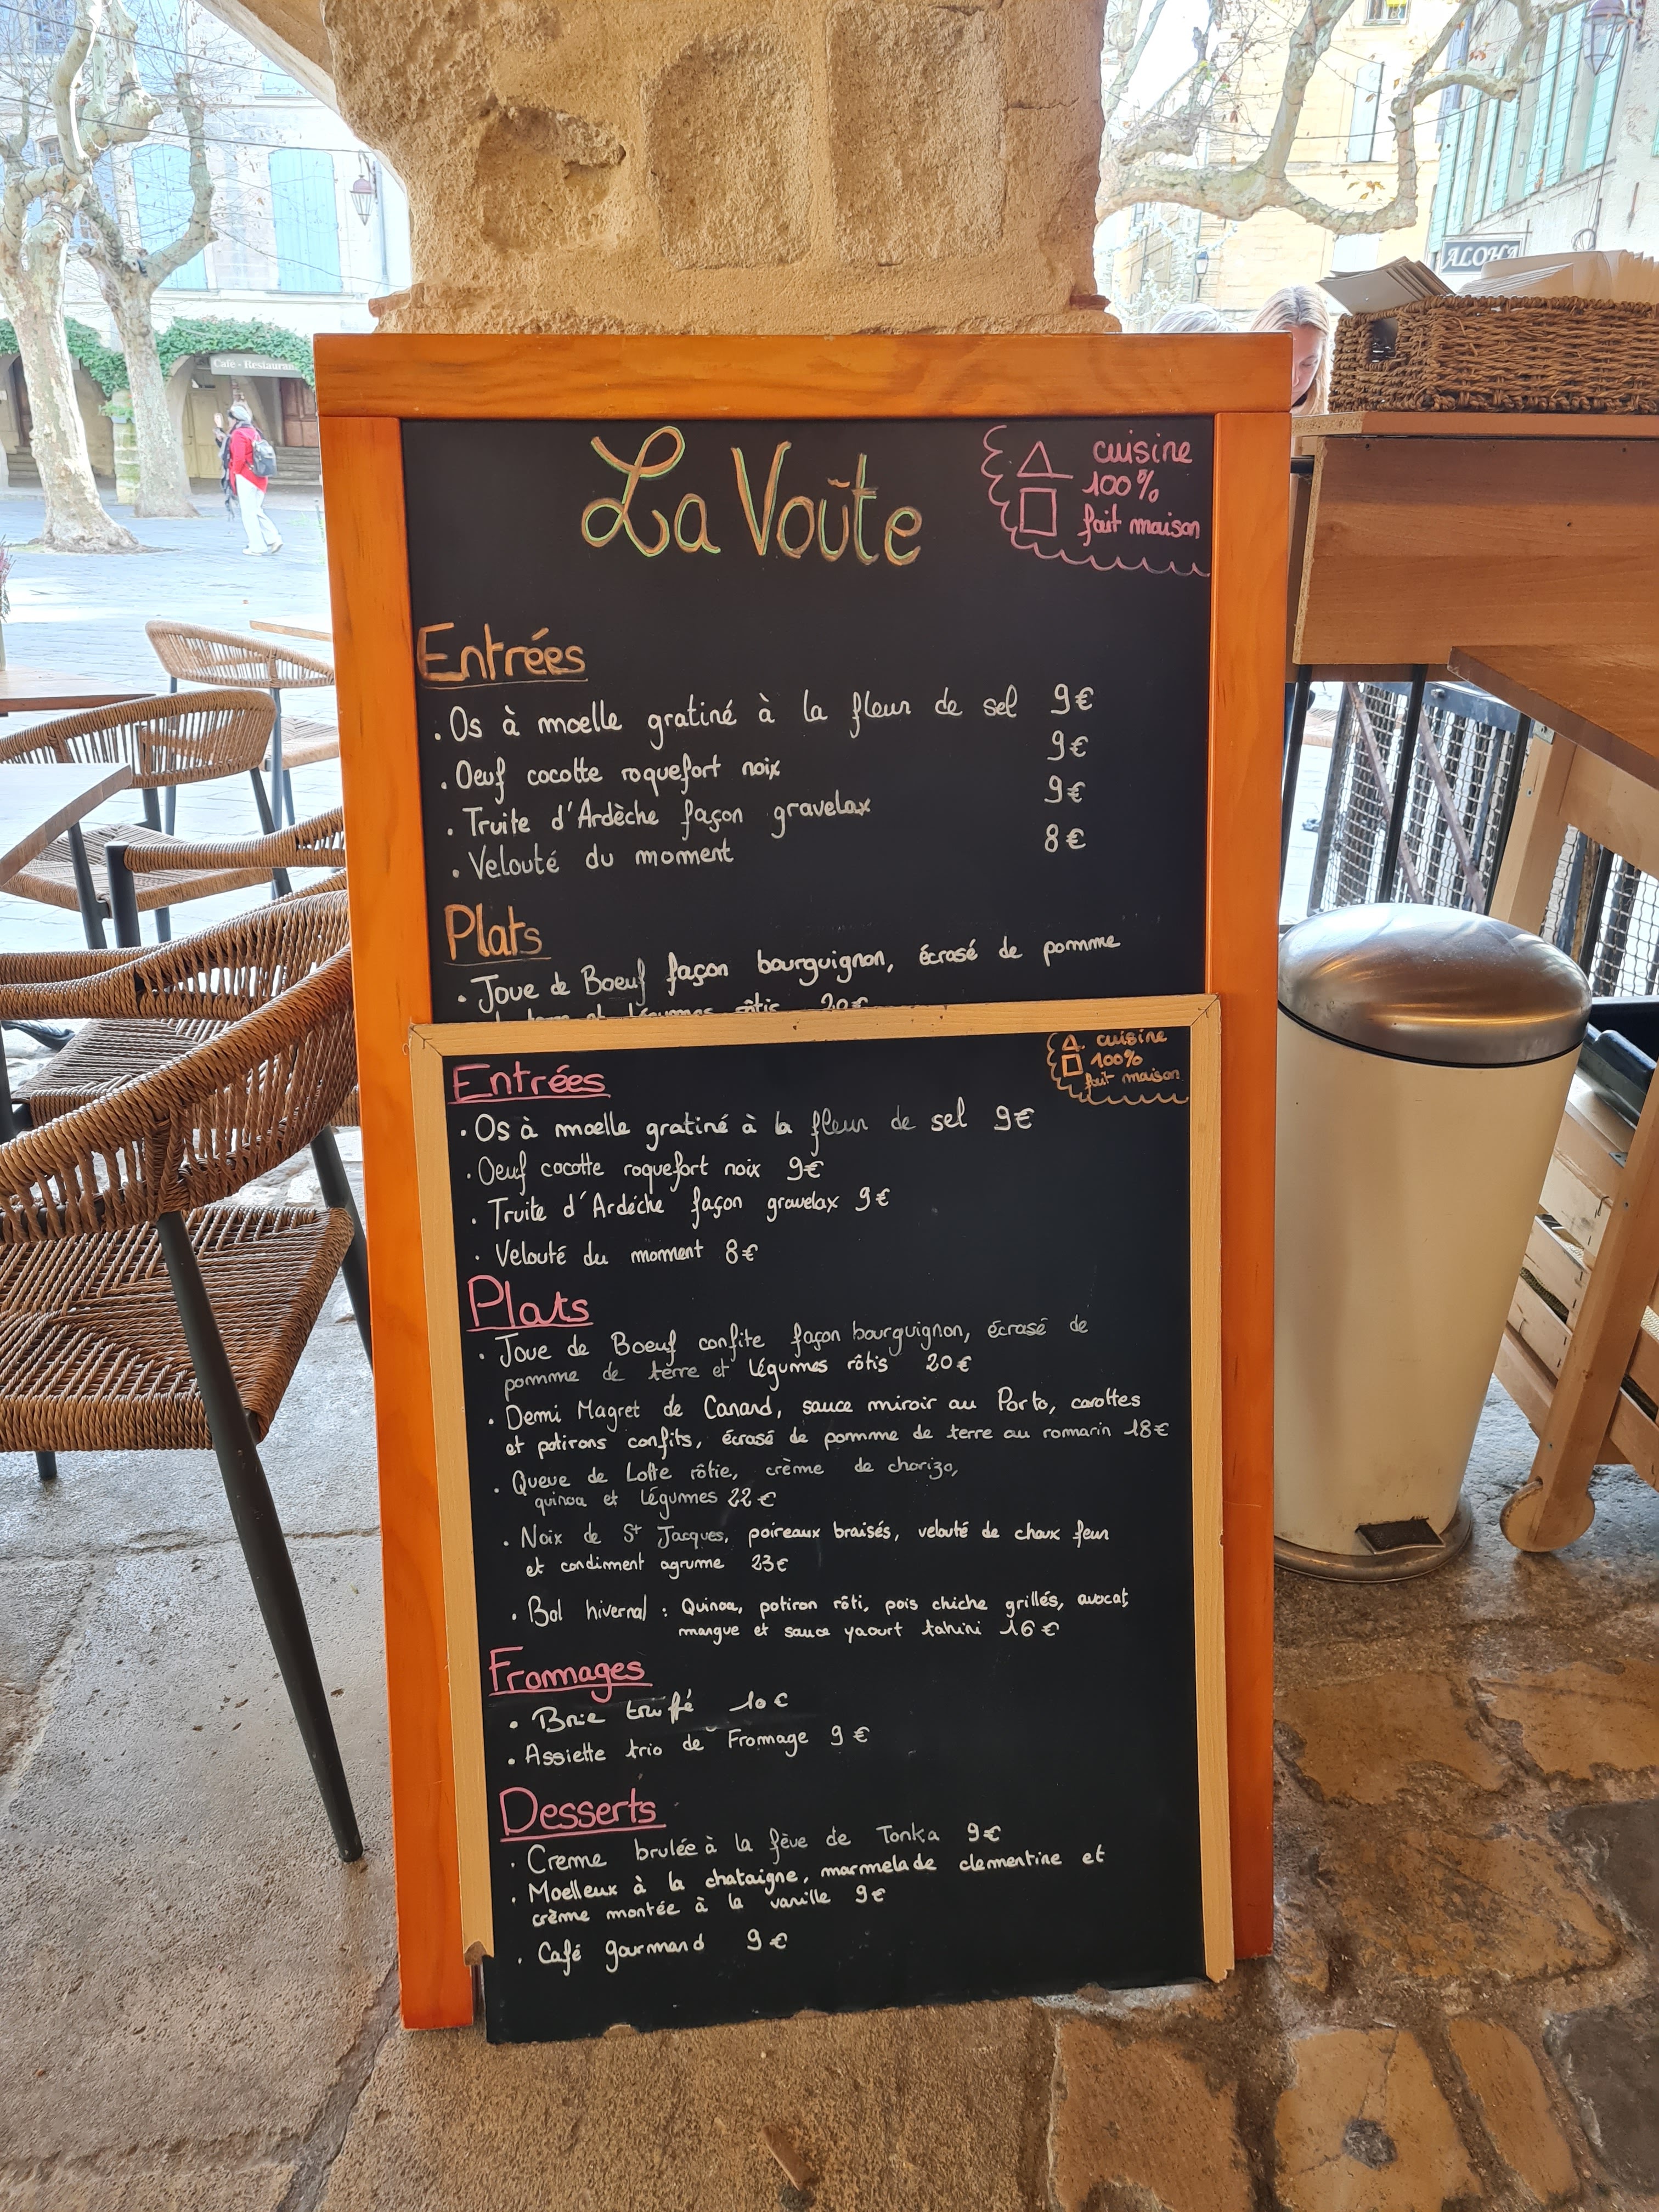 Café - Restaurant
ALOHA
La Voûte
cuisine
100%
fait maison
Entrées
. Os à moelle gratiné à la fleur de sel 9€
. Oeuf cocotte roquefort noix 9€
. Truite d'Ardèche façon gravelax 9€
. Velouté du moment 8€
Plats
. Joue de Boeuf façon bourguignon, écrasé de pomme
de terre et légumes rôtis 20€
cuisine
100%
fait maison
Entrées
. Os à moelle gratiné à la fleur de sel 9€
. Oeuf cocotte roquefort noix 9€
. Truite d'Ardéche façon gravelax 9€
. Velouté du moment 8€
Plats
. Joue de Boeuf confite façon bourguignon, écrasé de
pomme de terre et légumes rôtis 20€
. Demi Magret de Canard, sauce miroir au Porto, carottes
et potirons confits, écrasé de pomme de terre au romarin 18€
. Queue de Lotte rôtie, crème de chorizo,
quinoa et légumes 22€
. Noix de St Jacques, poireaux braisés, velouté de choux fleur
et condiment agrume 23€
. Bol hivernal : Quinoa, potiron rôti, pois chiche grillés, avocat,
mangue et sauce yaourt tahini 16€
Fromages
. Brie truffé 10€
. Assiette trio de Fromage 9€
Desserts
. Creme brulée à la fève de Tonka 9€
. Moelleux à la chataigne, marmelade clementine et
crème montée à la vanille 9€
. Café gourmand 9€